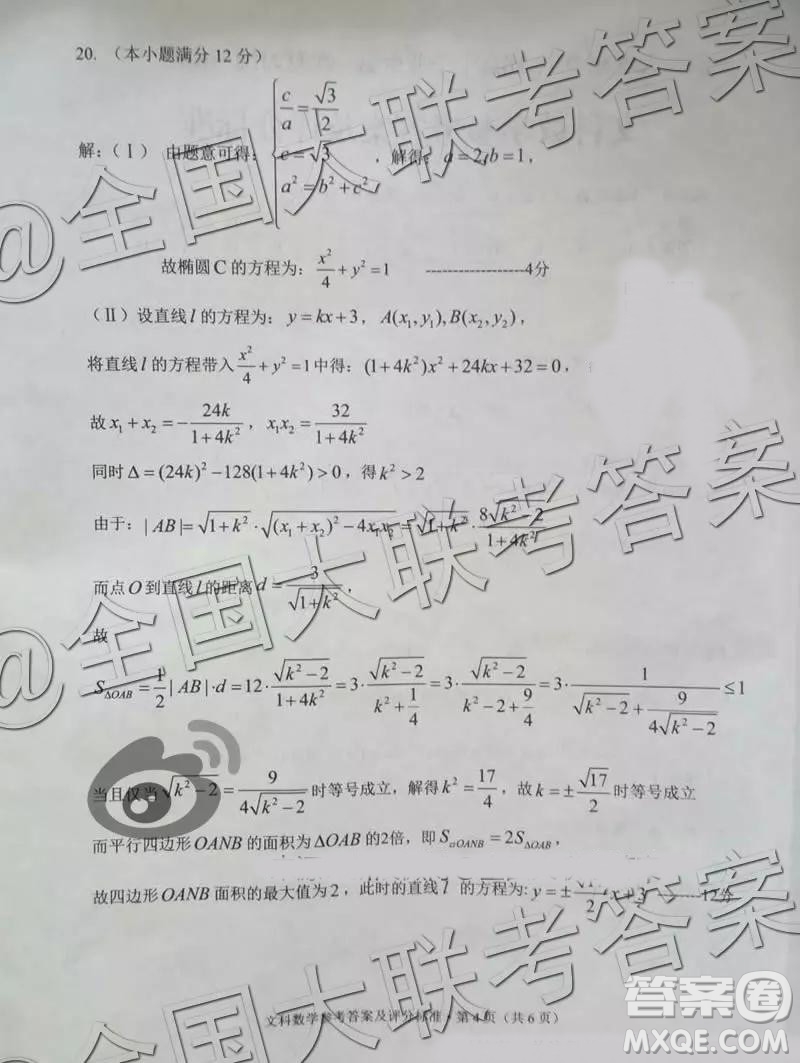 20. （本小题满分12分）
解：（Ⅰ） 由题意可得：{c/a = √3/2, c = √3, a² = b² + c²， 解得：a = 2, b = 1，
故椭圆C的方程为：x²/4 + y² = 1 -------------------4分
（Ⅱ）设直线l的方程为：y = kx + 3， A(x₁, y₁), B(x₂, y₂)，
将直线l的方程带入x²/4 + y² = 1中得：(1 + 4k²)x² + 24kx + 32 = 0，
故 x₁ + x₂ = −24k/(1 + 4k²)， x₁x₂ = 32/(1 + 4k²)
同时 Δ = (24k)² − 128(1 + 4k²) > 0，得 k² > 2
由于：|AB| = √(1 + k²) · √((x₁ + x₂)² − 4x₁x₂) = √(1 + k²) · 8√(k² − 2)/(1 + 4k²)
而点O到直线l的距离 d = 3/√(1 + k²)，
故
S△OAB = 1/2|AB|·d = 12·√(k² − 2)/(1 + 4k²) = 3·√(k² − 2)/(k² + 1/4) = 3·√(k² − 2)/(k² − 2 + 9/4) = 3·1/(√(k² − 2) + 9/(4√(k² − 2))) ≤ 1
当且仅当√(k² − 2) = 9/(4√(k² − 2))时等号成立，解得k² = 17/4，故k = ±√17/2时等号成立
而平行四边形OANB的面积为ΔOAB的2倍，即 S▱OANB = 2S△OAB，
故四边形OANB面积的最大值为2，此时的直线l 的方程为: y = ±√17/2 x + 3 --------12分
文科数学参考答案及评分标准·第4页（共6页）
@全国大联考答案
@全国大联考答案
答案圈
MXQE.COM